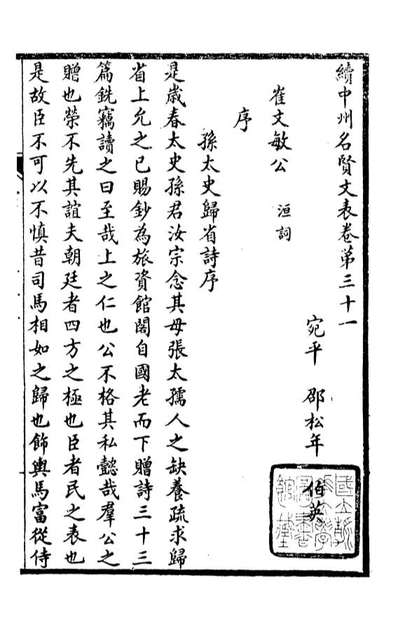 續中州名賢文表卷第三十一
宛平 邵松年 伯英
崔文敏公 洹詞
序
孫太史歸省詩序
是歲春太史孫君汝宗念其母張太孺人之缺養疏求歸
省上允之已賜鈔為旅資館閣自國老而下贈詩三十三
篇銑竊讀之曰至哉上之仁也公不格其私懿哉羣公之
贈也榮不先其誼夫朝廷者四方之極也臣者民之表也
是故臣不可以不慎昔司馬相如之歸也飾輿馬富從侍